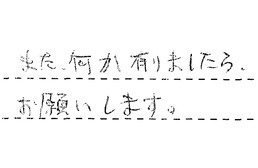 また、何か有りましたら、
お願いします。